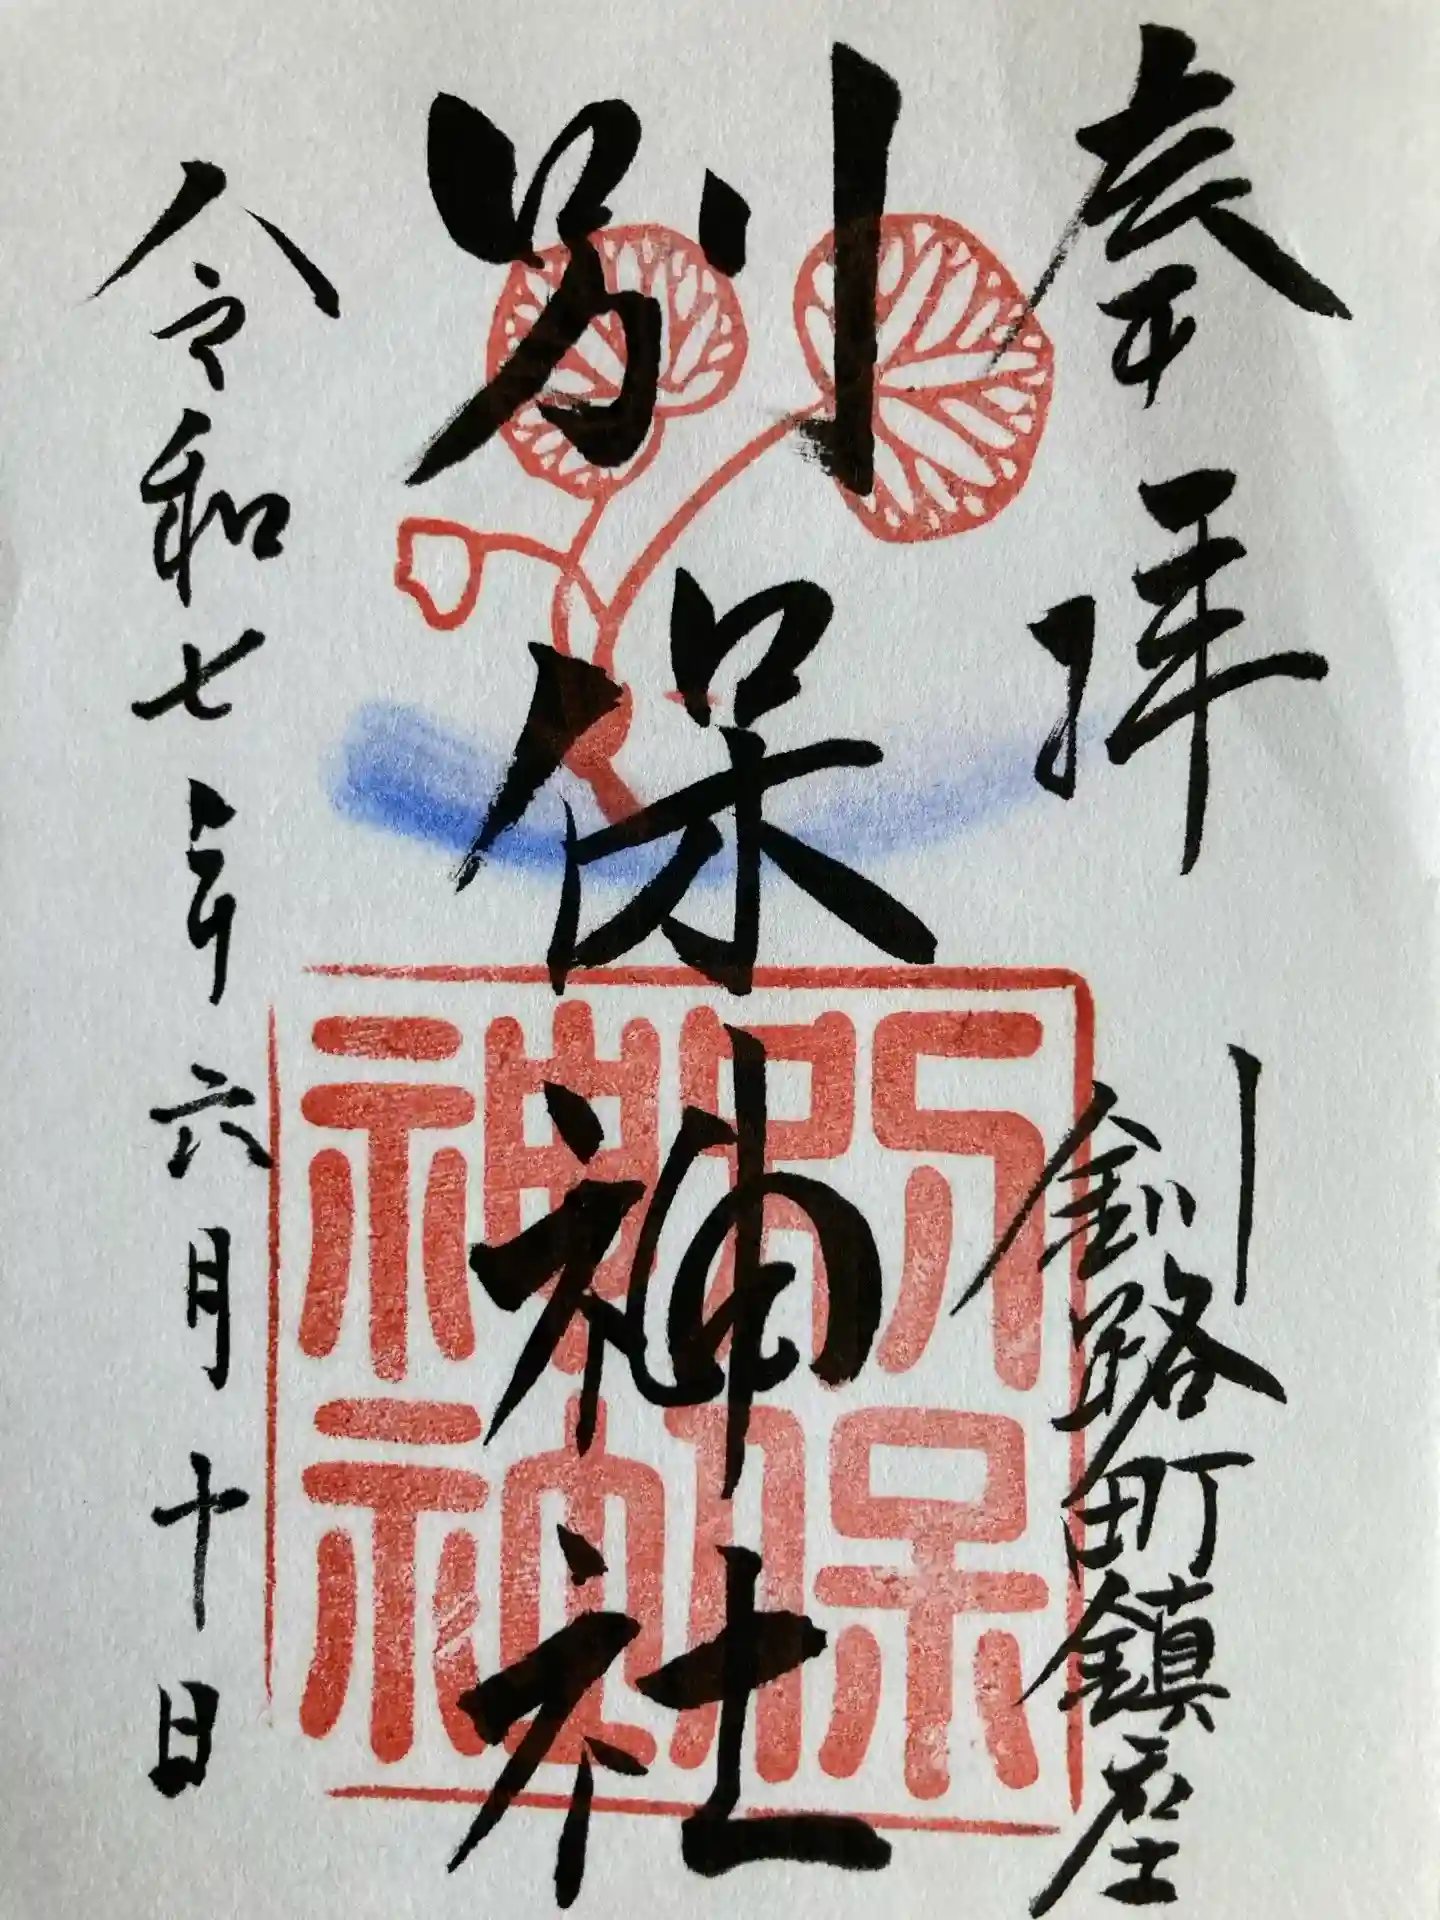 奉拝
釧路町鎮座
別保神社
令和七年六月十日